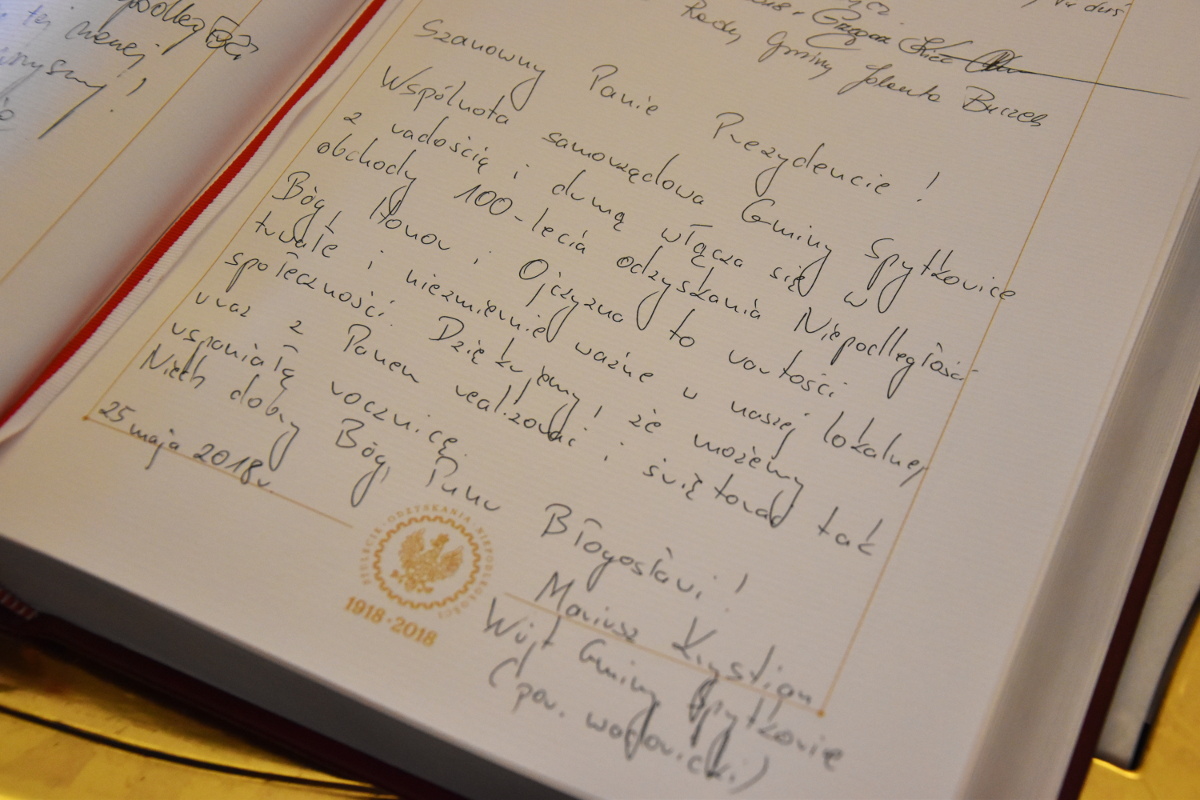 Rady Gminy Jolanta Burzes
Szanowny Panie Prezydencie!
Wspólnota samorządowa Gminy Spytkowice
z radością i dumą włącza się w
obchody 100-lecia odzyskania Niepodległości.
Bóg, Honor i Ojczyzna to wartości
trwałe i niezmiernie ważne w naszej lokalnej
społeczności. Dziękujemy, że możemy
wraz z Panem realizować i świętować tak
wspaniałą rocznicę.
Niech dobry Bóg, Panu Błogosławi!
25 maja 2018r.
STULECIE ODZYSKANIA NIEPODLEGŁOŚCI
1918·2018
Mariusz Krystian
Wójt Gminy Spytkowice
(pow. wadowicki)